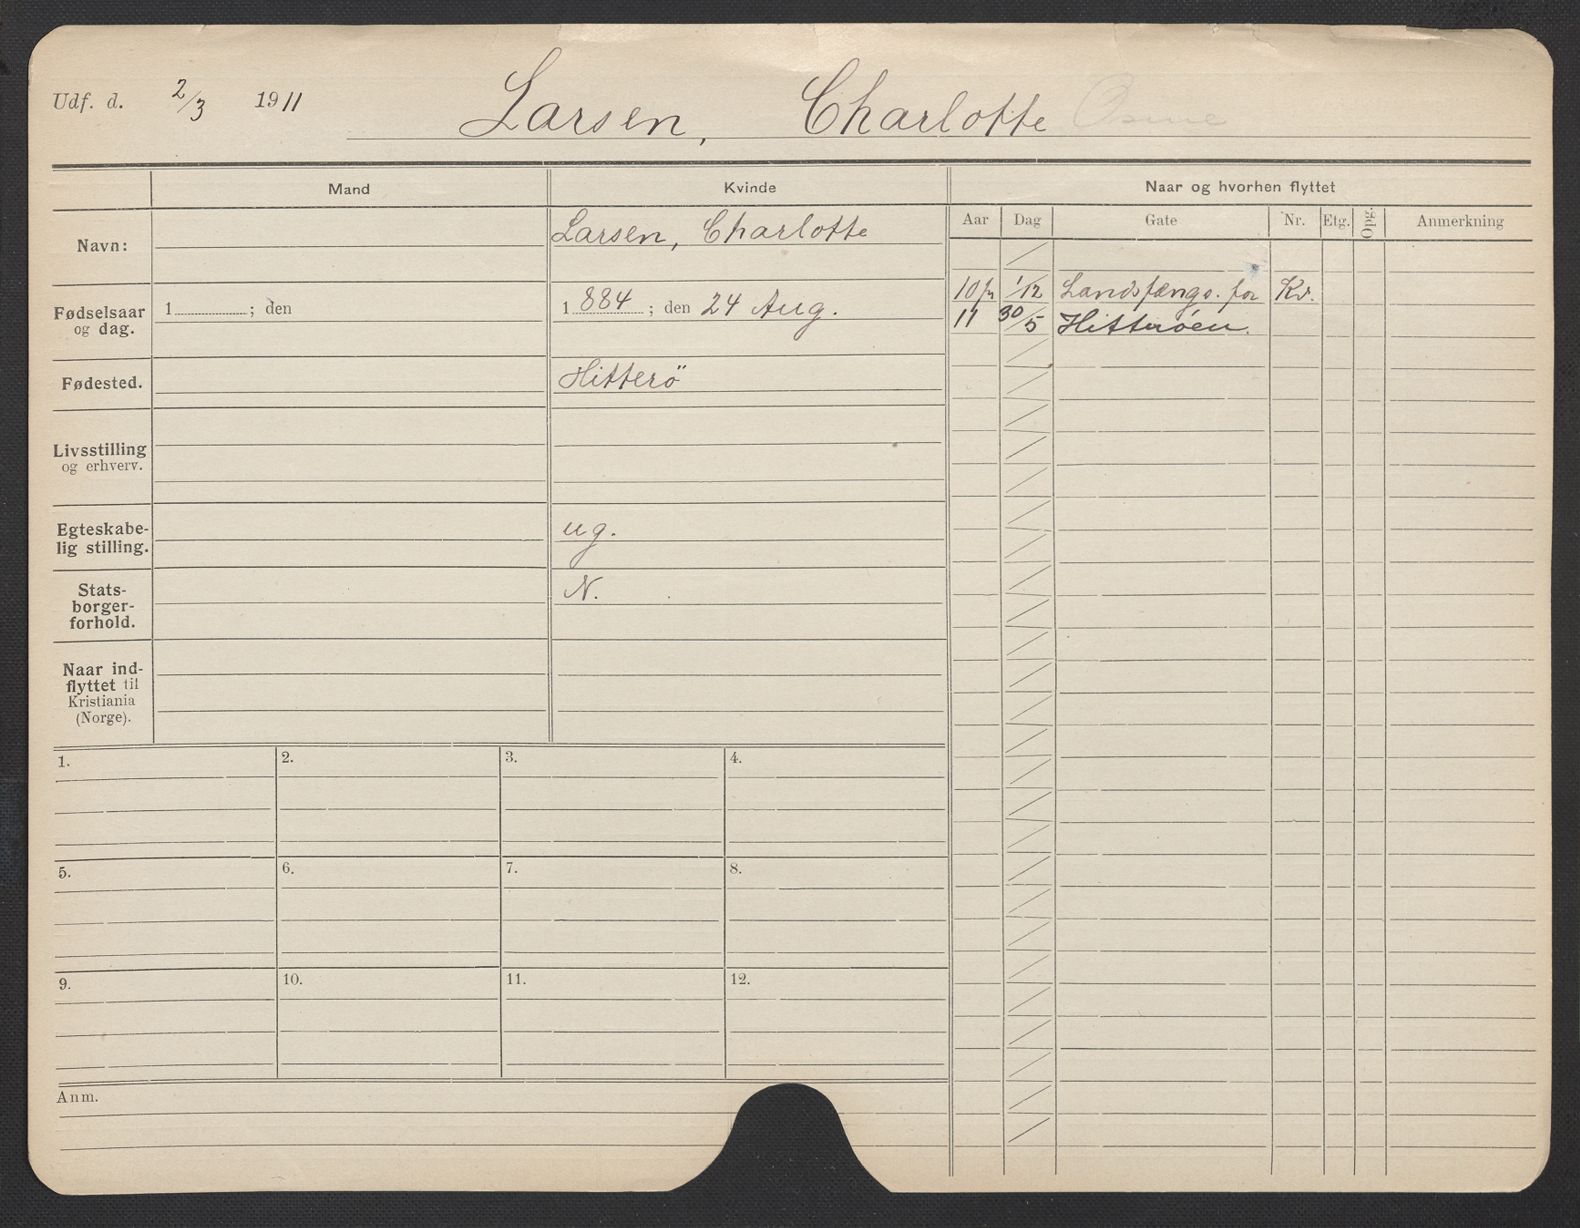 Udf. d. 2/3 1911
Larsen, Charlotte
Mand
Kvinde
Naar og hvorhen flyttet
Aar Dag Gate Nr. Etg. Opg. Anmerkning
Navn:
Larsen, Charlotte
Fødselsaar
og dag.
1 ; den
1 884 ; den 24 Aug.
10 1/12 Landsfængs. for Kv.
11 30/5 Hitterøen.
Fødested.
Hitterö
Livsstilling
og erhverv.
Egteskabe-
lig stilling.
ug.
Stats-
borger-
forhold.
N.
Naar ind-
flyttet til
Kristiania
(Norge).
1. 2. 3. 4.
5. 6. 7. 8.
9. 10. 11. 12.
Anm.